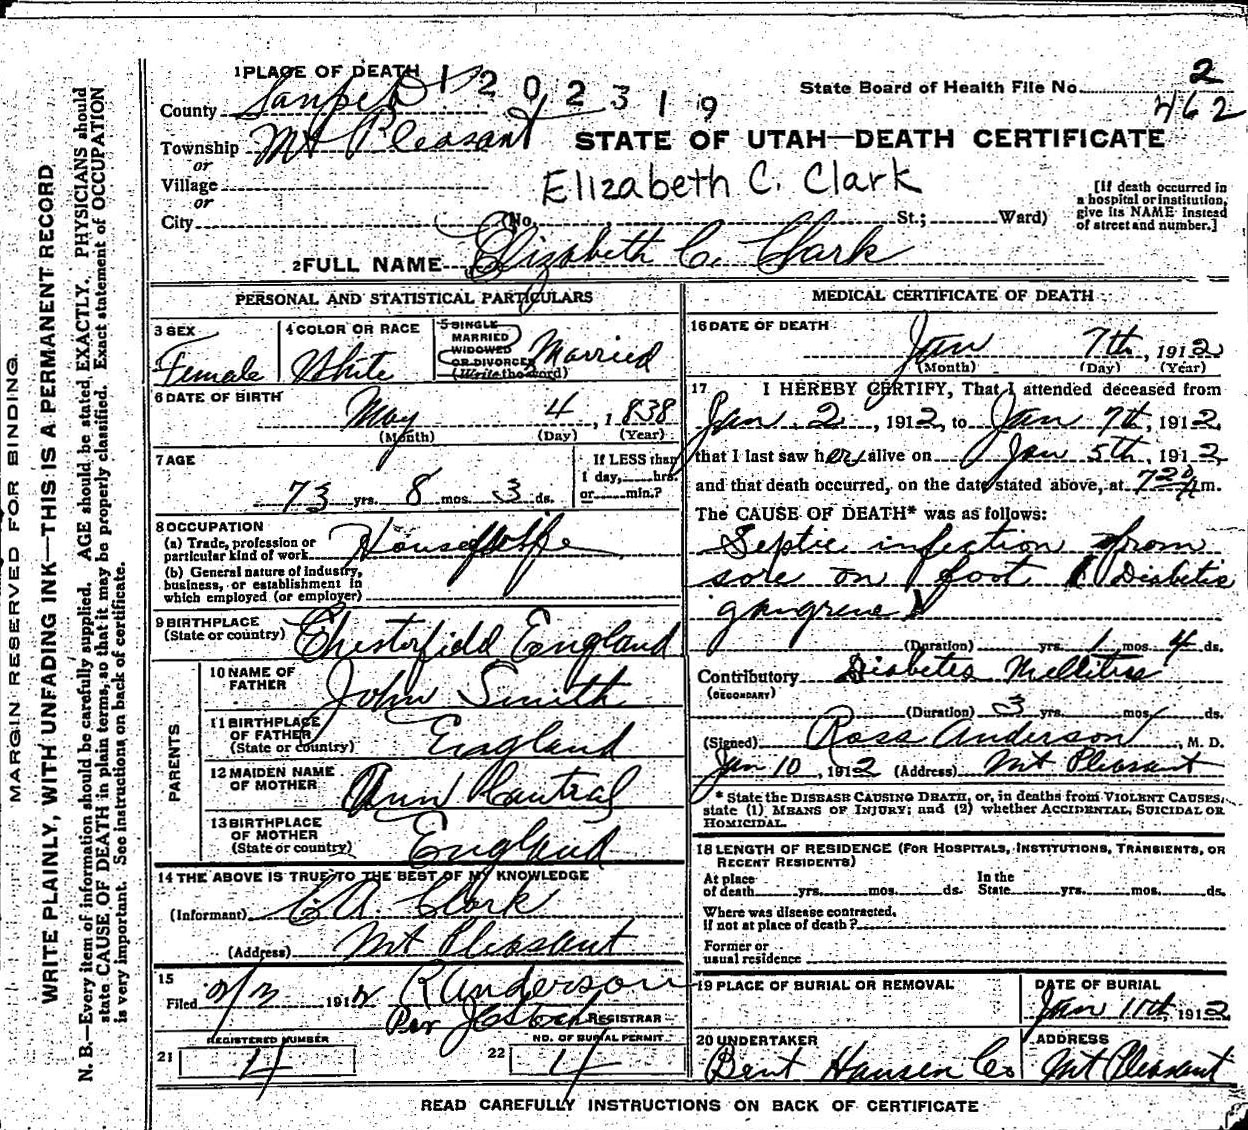 1 PLACE OF DEATH 1 2 0 2 3 1 9
County Sanpete
State Board of Health File No. 2
462
Township Mt Pleasant
STATE OF UTAH—DEATH CERTIFICATE
or
Village
Elizabeth C. Clark
or
City (No. St.; Ward)
[If death occurred in
a hospital or institution,
give its NAME instead
of street and number.]
2 FULL NAME Elizabeth C. Clark
PERSONAL AND STATISTICAL PARTICULARS
3 SEX
Female
4 COLOR OR RACE
White
5 SINGLE
MARRIED
WIDOWED
OR DIVORCED
(Write the word)
Married
6 DATE OF BIRTH
May 4, 1838
(Month) (Day) (Year)
7 AGE
73 yrs. 8 mos. 3 ds.
If LESS than
1 day, hrs.
or min.?
8 OCCUPATION
(a) Trade, profession or
particular kind of work Housewife
(b) General nature of industry,
business, or establishment in
which employed (or employer)
9 BIRTHPLACE
(State or country) Chesterfield England
PARENTS
10 NAME OF
FATHER John Smith
11 BIRTHPLACE
OF FATHER
(State or country) England
12 MAIDEN NAME
OF MOTHER Ann
13 BIRTHPLACE
OF MOTHER
(State or country) England
14 THE ABOVE IS TRUE TO THE BEST OF MY KNOWLEDGE
(Informant) C A Clark
(Address) Mt Pleasant
15
Filed 2/3 1912 R Anderson
Per REGISTRAR
REGISTERED NUMBER
21 4
NO. OF BURIAL PERMIT
22 4
MEDICAL CERTIFICATE OF DEATH
16 DATE OF DEATH
Jan 7th, 1912
(Month) (Day) (Year)
17 I HEREBY CERTIFY, That I attended deceased from
Jan. 2, 1912, to Jan 7th, 1912,
that I last saw her alive on Jan 5th, 1912,
and that death occurred, on the date stated above, at 720 A m.
The CAUSE OF DEATH* was as follows:
Septic infection from
sore on foot (Diabetic
gangrene)
(Duration) yrs. 1 mos. 4 ds.
Contributory Diabetes Mellitus
(SECONDARY)
(Duration) 3 yrs. mos. ds.
(Signed) Ross Anderson, M. D.
Jan 10, 1912 (Address) Mt Pleasant
* State the DISEASE CAUSING DEATH, or, in deaths from VIOLENT CAUSES,
state (1) MEANS OF INJURY; and (2) whether ACCIDENTAL, SUICIDAL OR
HOMICIDAL.
18 LENGTH OF RESIDENCE (FOR HOSPITALS, INSTITUTIONS, TRANSIENTS, OR
RECENT RESIDENTS)
At place
of death yrs. mos. ds.
In the
State yrs. mos. ds.
Where was disease contracted,
if not at place of death?
Former or
usual residence
19 PLACE OF BURIAL OR REMOVAL
DATE OF BURIAL
Jan 11th, 1912
20 UNDERTAKER
Bent Hansen Co
ADDRESS
Mt Pleasant
READ CAREFULLY INSTRUCTIONS ON BACK OF CERTIFICATE
MARGIN RESERVED FOR BINDING.
WRITE PLAINLY, WITH UNFADING INK—THIS IS A PERMANENT RECORD
N. B.—Every item of information should be carefully supplied. AGE should be stated EXACTLY. PHYSICIANS should
state CAUSE OF DEATH in plain terms, so that it may be properly classified. Exact statement of OCCUPATION
is very important. See instructions on back of certificate.